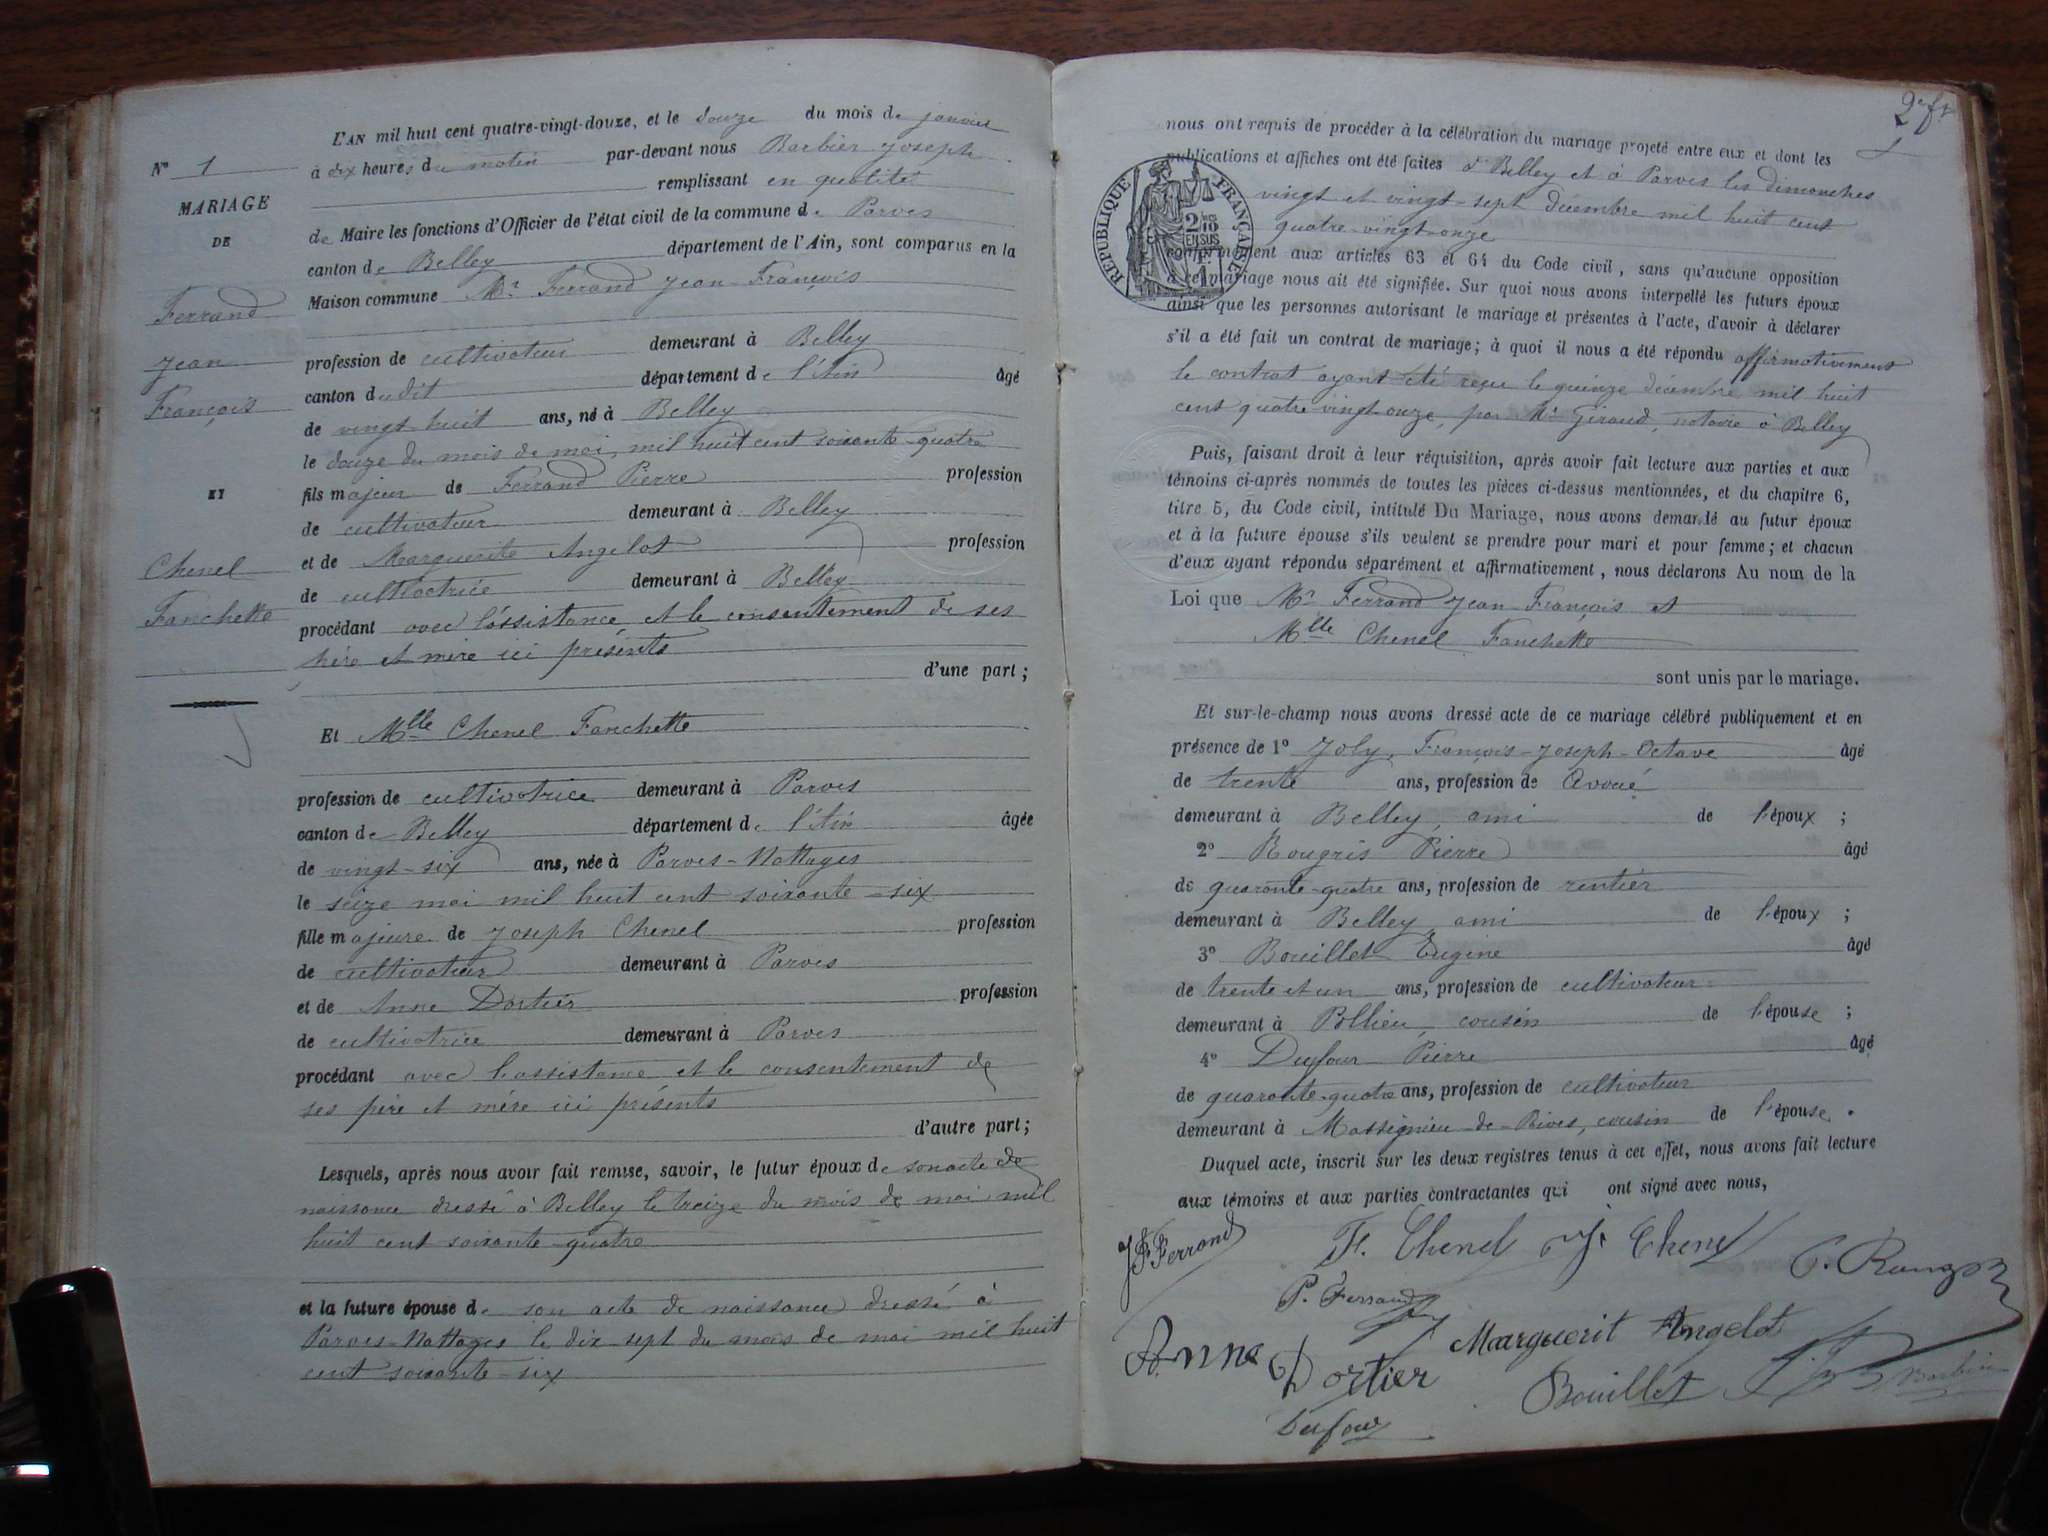 L'AN mil huit cent quatre-vingt-douze, et le douze du mois de janvier
à dix heures du matin par-devant nous Barbier Joseph
remplissant en qualité
de Maire les fonctions d'Officier de l'état civil de la commune de Parves
canton de Belley département de l'Ain, sont comparus en la
Maison commune Mr Ferrand Jean-François
profession de cultivateur demeurant à Belley
canton dudit département de l'Ain âgé
de vingt-huit ans, né à Belley
le douze du mois de mai, mil huit cent soixante-quatre
fils majeur de Ferrand Pierre profession
de cultivateur demeurant à Belley
et de Marguerite Angelot profession
de cultivatrice demeurant à Belley
procédant avec l'assistance et le consentement de ses
père et mère ici présents
d'une part;
Et Mlle Chenel Fanchette
profession de cultivatrice demeurant à Parves
canton de Belley département de l'Ain âgée
de vingt-six ans, née à Parves-Nattages
le seize mai mil huit cent soixante-six
fille majeure de Joseph Chenel profession
de cultivateur demeurant à Parves
et de Anne Dortier profession
de cultivatrice demeurant à Parves
procédant avec l'assistance et le consentement de
ses père et mère ici présents
d'autre part;
Lesquels, après nous avoir fait remise, savoir, le futur époux de son acte de
naissance dressé à Belley le treize du mois de mai mil
huit cent soixante-quatre
et la future épouse de son acte de naissance dressé à
Parves-Nattages le dix-sept du mois de mai mil huit
cent soixante-six
N° 1
MARIAGE
DE
Ferrand
Jean
François
ET
Chenel
Fanchette
2e ft
nous ont requis de procéder à la célébration du mariage projeté entre eux et dont les
publications et affiches ont été faites à Belley et à Parves les dimanches
vingt et vingt-sept décembre mil huit cent
quatre-vingt-onze
conformément aux articles 63 et 64 du Code civil, sans qu'aucune opposition
à ce mariage nous ait été signifiée. Sur quoi nous avons interpellé les futurs époux
ainsi que les personnes autorisant le mariage et présentes à l'acte, d'avoir à déclarer
s'il a été fait un contrat de mariage; à quoi il nous a été répondu affirmativement
le contrat ayant été reçu le quinze décembre mil huit
cent quatre-vingt-onze, par Me Giraud, notaire à Belley
RÉPUBLIQUE FRANÇAISE
2/10
EN SUS
Puis, faisant droit à leur réquisition, après avoir fait lecture aux parties et aux
témoins ci-après nommés de toutes les pièces ci-dessus mentionnées, et du chapitre 6,
titre 5, du Code civil, intitulé Du Mariage, nous avons demandé au futur époux
et à la future épouse s'ils veulent se prendre pour mari et pour femme; et chacun
d'eux ayant répondu séparément et affirmativement, nous déclarons Au nom de la
Loi que Mr Ferrand Jean-François et
Mlle Chenel Fanchette
sont unis par le mariage.
Et sur-le-champ nous avons dressé acte de ce mariage célébré publiquement et en
présence de 1° Joly, François-Joseph-Octave âgé
de trente ans, profession de Avoué
demeurant à Belley, ami de l'époux ;
2° Rougris Pierre âgé
de quarante-quatre ans, profession de rentier
demeurant à Belley ami de l'époux ;
3° Bouillet Eugène âgé
de trente et un ans, profession de cultivateur
demeurant à Pollieu, cousin de l'épouse ;
4° Dufour Pierre âgé
de quarante-quatre ans, profession de cultivateur
demeurant à Massignieu-de-Rives, cousin de l'épouse.
Duquel acte, inscrit sur les deux registres tenus à cet effet, nous avons fait lecture
aux témoins et aux parties contractantes qui ont signé avec nous,
J F Ferrand F. Chenel J. Chenel
P. Ferrand
Anne Dortier Marguerit Angelot
Bouillet Barbier
Dufour